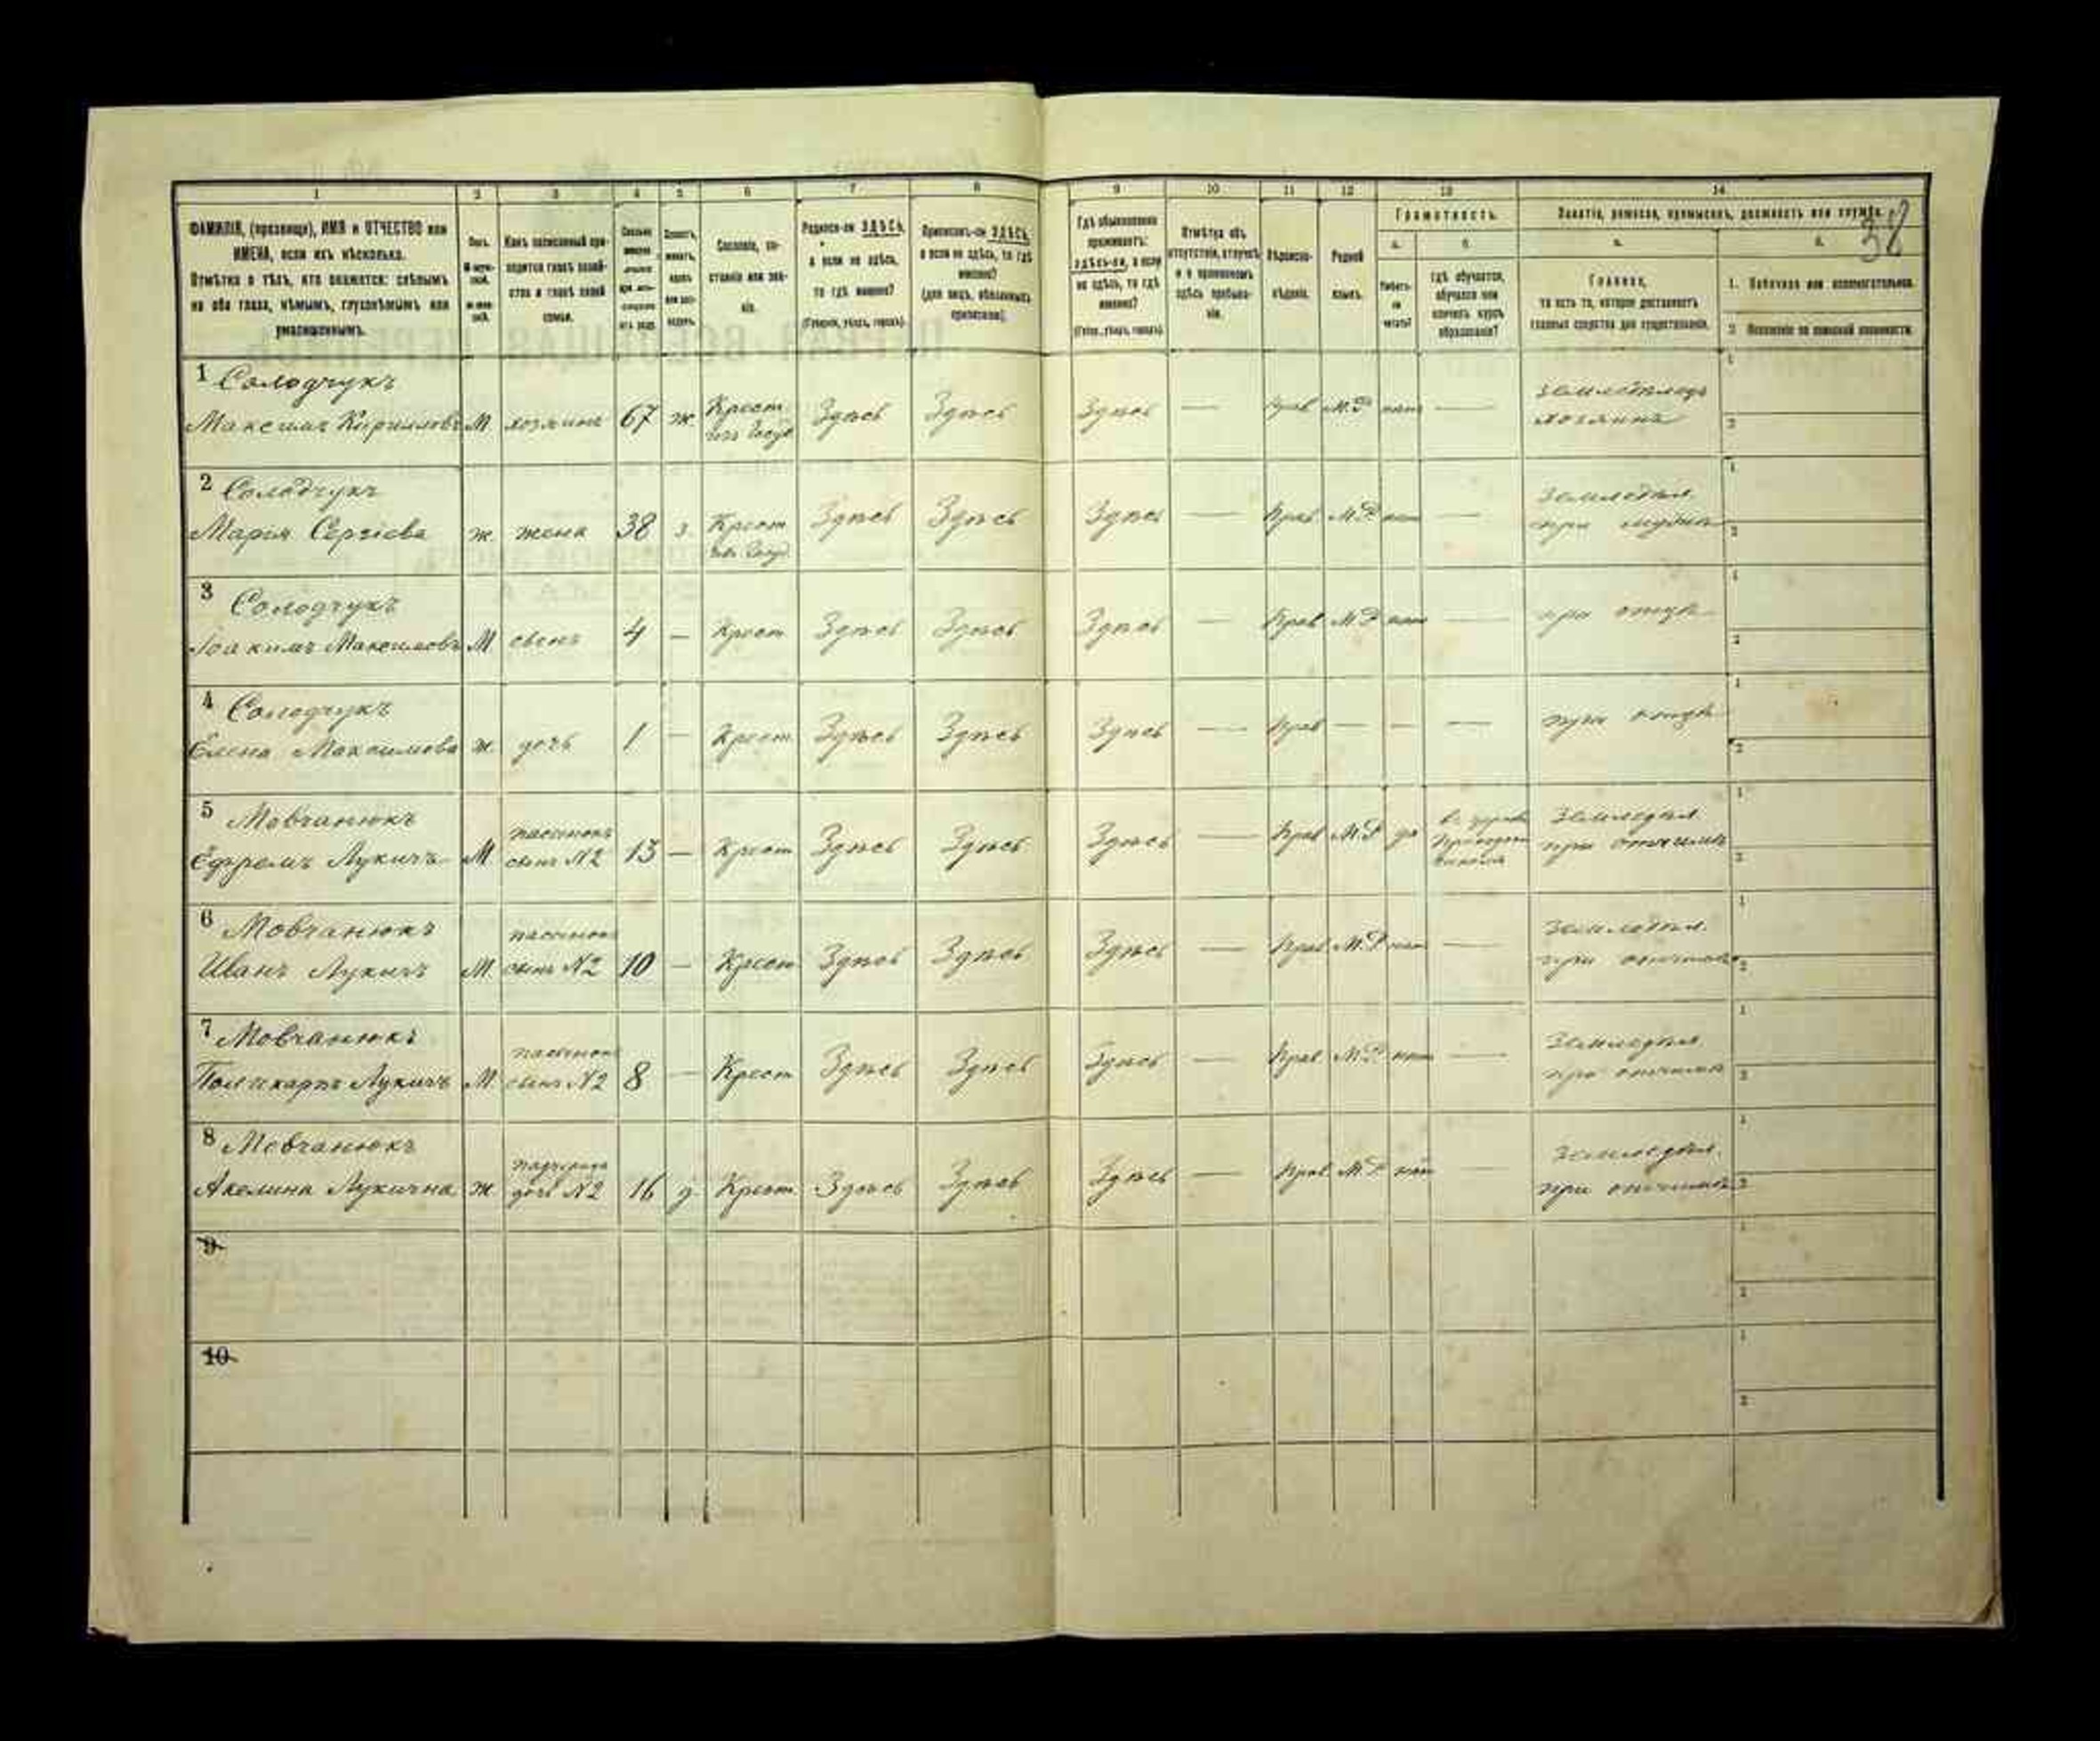 1 2 3 4 5 6 7 8 9 10 11 12 13 14
38
ФАМИЛІЯ, (прозвище), ИМЯ и ОТЧЕСТВО или
ИМЕНА, если ихъ нѣсколько.
Отмѣтка о тѣхъ, кто окажется: слѣпымъ
на оба глаза, нѣмымъ, глухонѣмымъ или
умалишеннымъ.
Полъ.
Сословіе, со-
стояніе или зва-
ніе.
Родился-ли ЗДѢСЬ,
а если не здѣсь,
то гдѣ именно?
(Губернія, уѣздъ, городъ).
Приписанъ-ли ЗДѢСЬ,
а если не здѣсь, то гдѣ
именно?
(для лицъ, обязанныхъ
припискою).
Гдѣ обыкновенно
проживаетъ:
здѣсь-ли, а если
не здѣсь, то гдѣ
именно?
(Губ., уѣздъ, городъ).
Отмѣтка объ
отсутствіи, отлучкѣ
и о временномъ
здѣсь пребыва-
ніи.
Вѣроиспо-
вѣданіе.
Родной
языкъ.
Грамотность.
а. б.
Умѣетъ-
ли
читать?
Гдѣ обучается,
обучался или
кончилъ курсъ
образованія?
Занятіе, ремесло, промыселъ, должность или служба.
а. б.
Главное,
то есть то, которое доставляетъ
главныя средства для существованія.
1. Побочное или вспомогательное.
2. Положеніе по воинской повинности.
1 Солодчукъ
Максимъ Кирилловъ М. хозяинъ 67 ж. Крест. изъ Госуд Здѣсь Здѣсь Здѣсь — Прав М.Р нѣт — Земледѣлецъ хозяинъ
2 Солодчукъ
Марія Сергіева ж. жена 38 з. Крест изъ Госуд. Здѣсь Здѣсь Здѣсь — Прав М.Р нѣт — Земледѣл. при мужѣ
3 Солодчукъ
Іоакимъ Максимовъ М. сынъ 4 — Крест Здѣсь Здѣсь Здѣсь — Прав М.Р нѣт — при отцѣ
4 Солодчукъ
Елена Максимова ж. дочь 1 — Крест Здѣсь Здѣсь Здѣсь — Прав — — — при отцѣ
5 Мовчанюкъ
Ефремъ Лукичъ М. пасынокъ сынъ №2 13 — Крест Здѣсь Здѣсь Здѣсь — Прав М.Р да Земледѣл. при отчимѣ
6 Мовчанюкъ
Иванъ Лукичъ М. пасынокъ сынъ №2 10 — Крест Здѣсь Здѣсь Здѣсь — Прав М.Р нѣт — Земледѣл. при отчимѣ
7 Мовчанюкъ
Поликарпъ Лукичъ М. пасынокъ сынъ №2 8 — Крест Здѣсь Здѣсь Здѣсь — Прав М.Р нѣт — Земледѣл. при отчимѣ
8 Мовчанюкъ
Акелина Лукична ж. падчерица дочь №2 16 д. Крест Здѣсь Здѣсь Здѣсь — Прав М.Р нѣт — Земледѣл. при отчимѣ
9
10